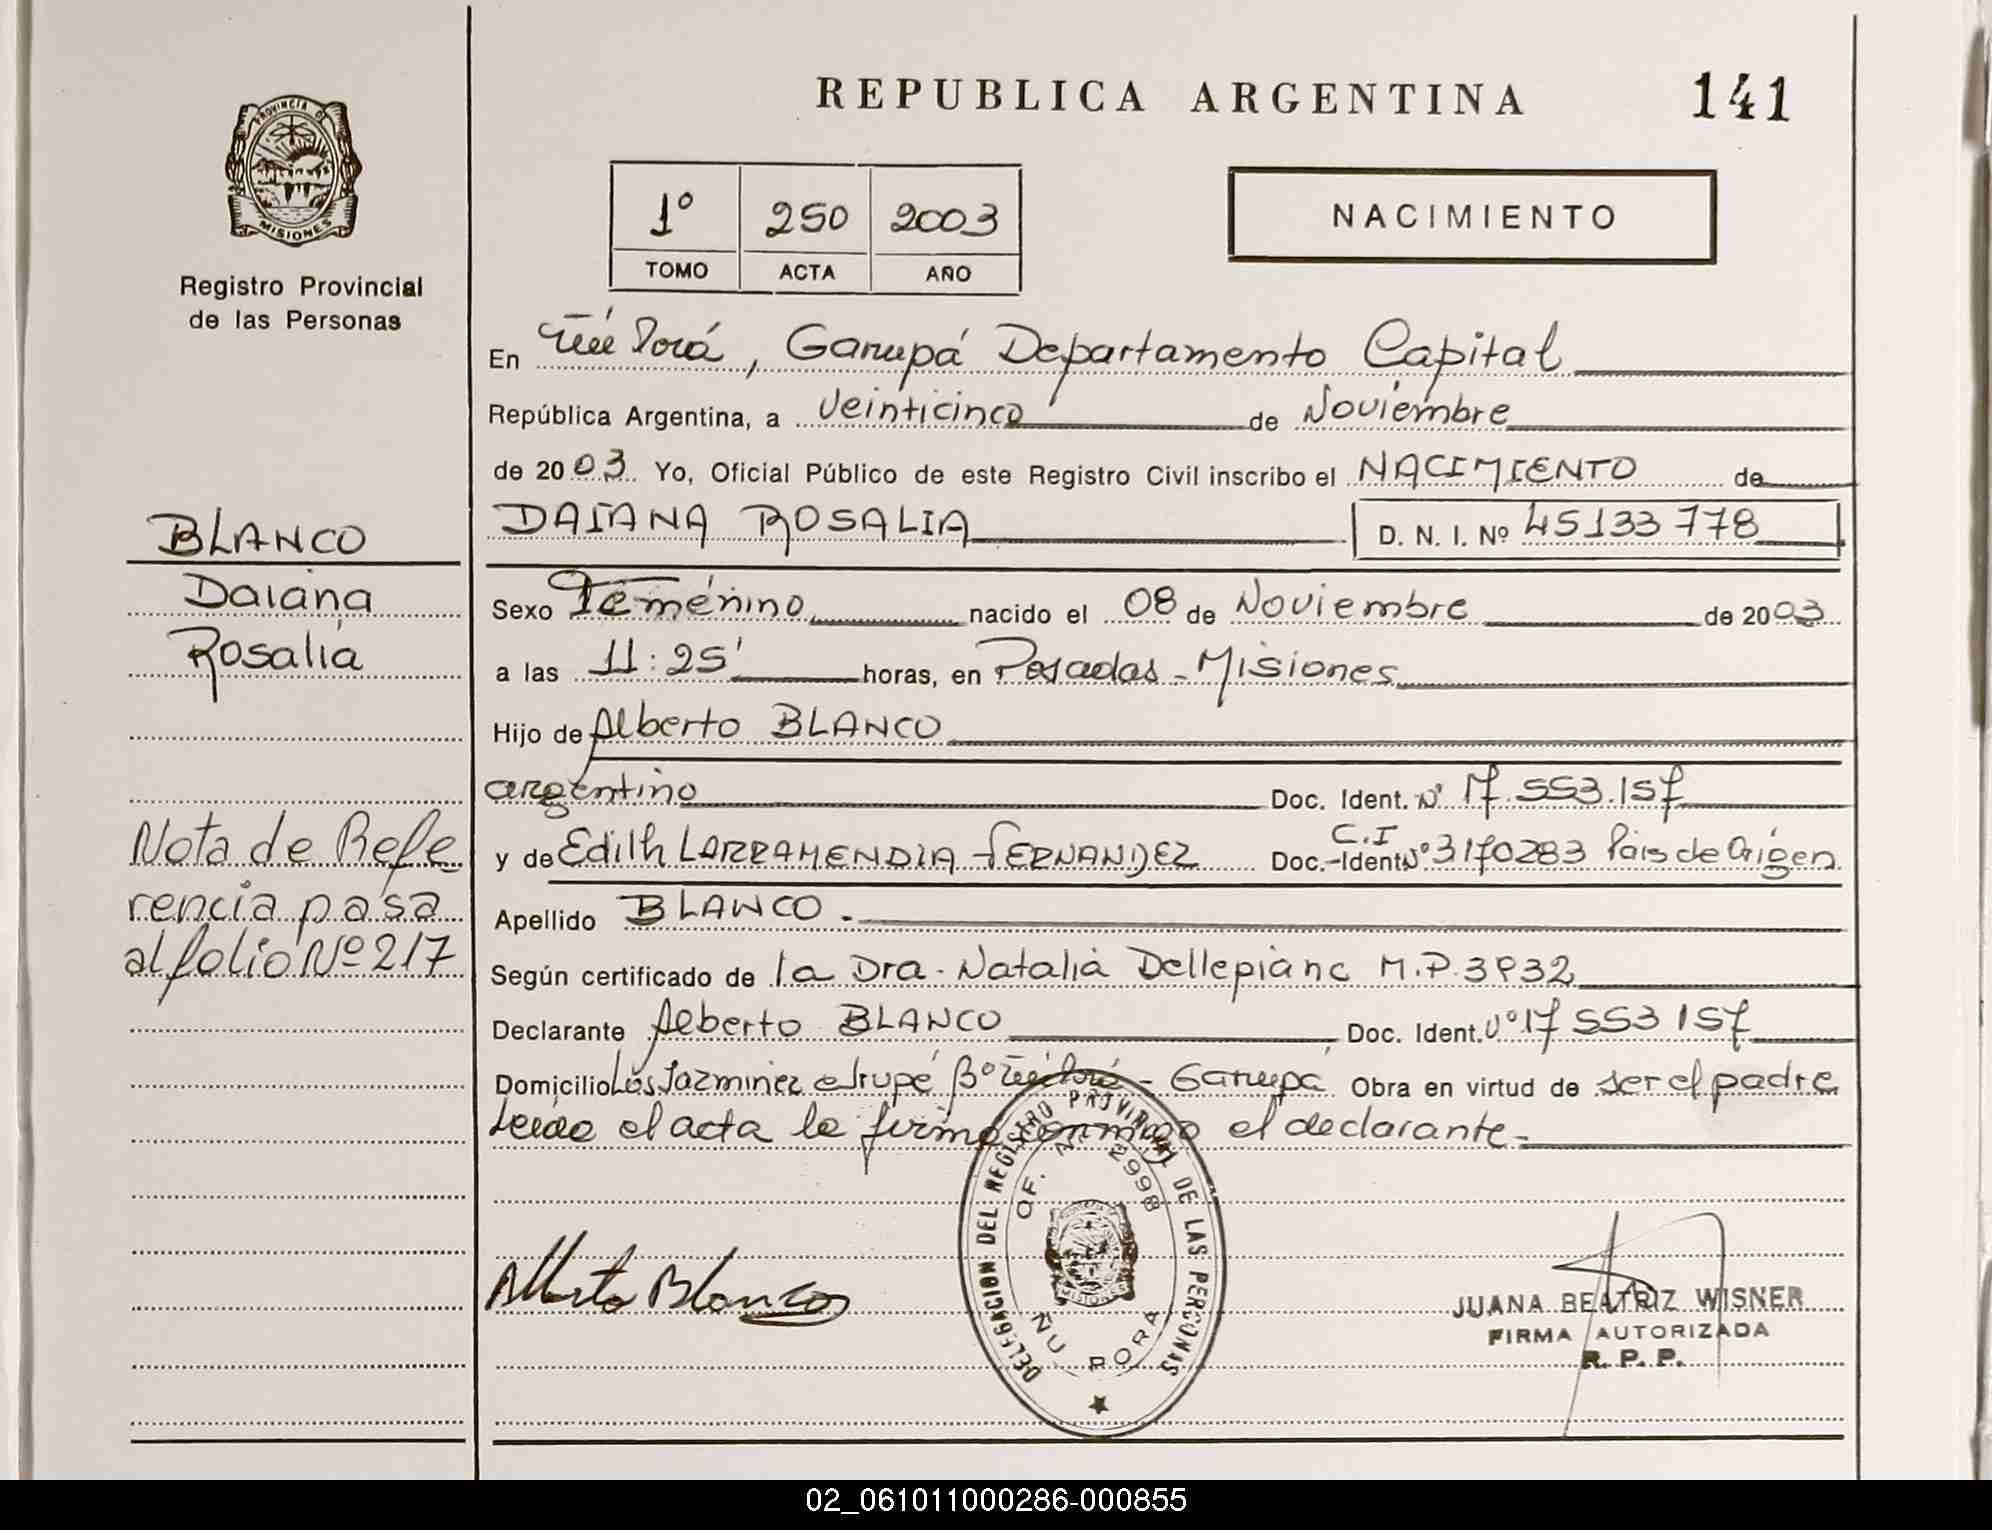 REPUBLICA ARGENTINA
141
PROVINCIA DE
MISIONES
Registro Provincial
de las Personas
1º 250 2003
TOMO ACTA AÑO
NACIMIENTO
En Ñu Porá, Garupá Departamento Capital
República Argentina, a Veinticinco de Noviembre
de 2003. Yo, Oficial Público de este Registro Civil inscribo el NACIMIENTO de
DAIANA ROSALIA D. N. I. Nº 45133778
BLANCO
Daiana
Rosalia
Sexo Femenino nacido el 08 de Noviembre de 2003
a las 11:25' horas, en Posadas - Misiones
Hijo de Alberto BLANCO
argentino Doc. Ident. Nº 17.553.157
y de Edith LARRAMENDIA FERNANDEZ C.I Doc. Ident Nº 3170283 País de Origen
Apellido BLANCO.
Según certificado de la Dra. Natalia Dellepiane M.P.
Declarante Alberto BLANCO Doc. Ident. Nº 17553157
Domicilio Los Jazmines e Irupé Bº Ñu Porá - Garupá Obra en virtud de ser el padre
Leída el acta la firma conmigo el declarante.
Nota de Refe
rencia pasa
al folio Nº 217
Alberto Blanco
DELEGACION DEL REGISTRO PROVINCIAL DE LAS PERSONAS
OF. Nº 2998
ÑU PORA
JUANA BEATRIZ WISNER
FIRMA AUTORIZADA
R. P. P.
02_061011000286-000855